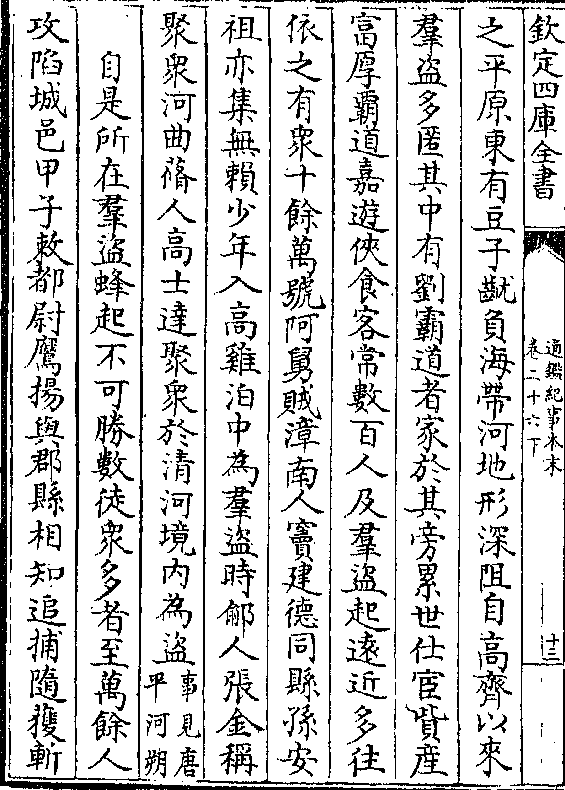 欽定四庫全書
通鑑紀事本末
卷二十六下
十三
之平原東有豆子䴚負海帶河地形深阻自高齊以來
羣盜多匿其中有劉霸道者家於其旁累世仕宦貲產
富厚霸道喜遊俠食客常數百人及羣盜起遠近多往
依之有衆十餘萬號阿舅賊漳南人竇建德同縣孫安
祖亦集無賴少年入高雞泊中為羣盜時鄃人張金稱
聚衆河曲蓨人高士達聚衆於清河境内為盜事見唐
平河朔
自是所在羣盜蜂起不可勝數徒衆多者至萬餘人
攻陷城邑甲子敕都尉鷹揚與郡縣相知追捕隨獲斬